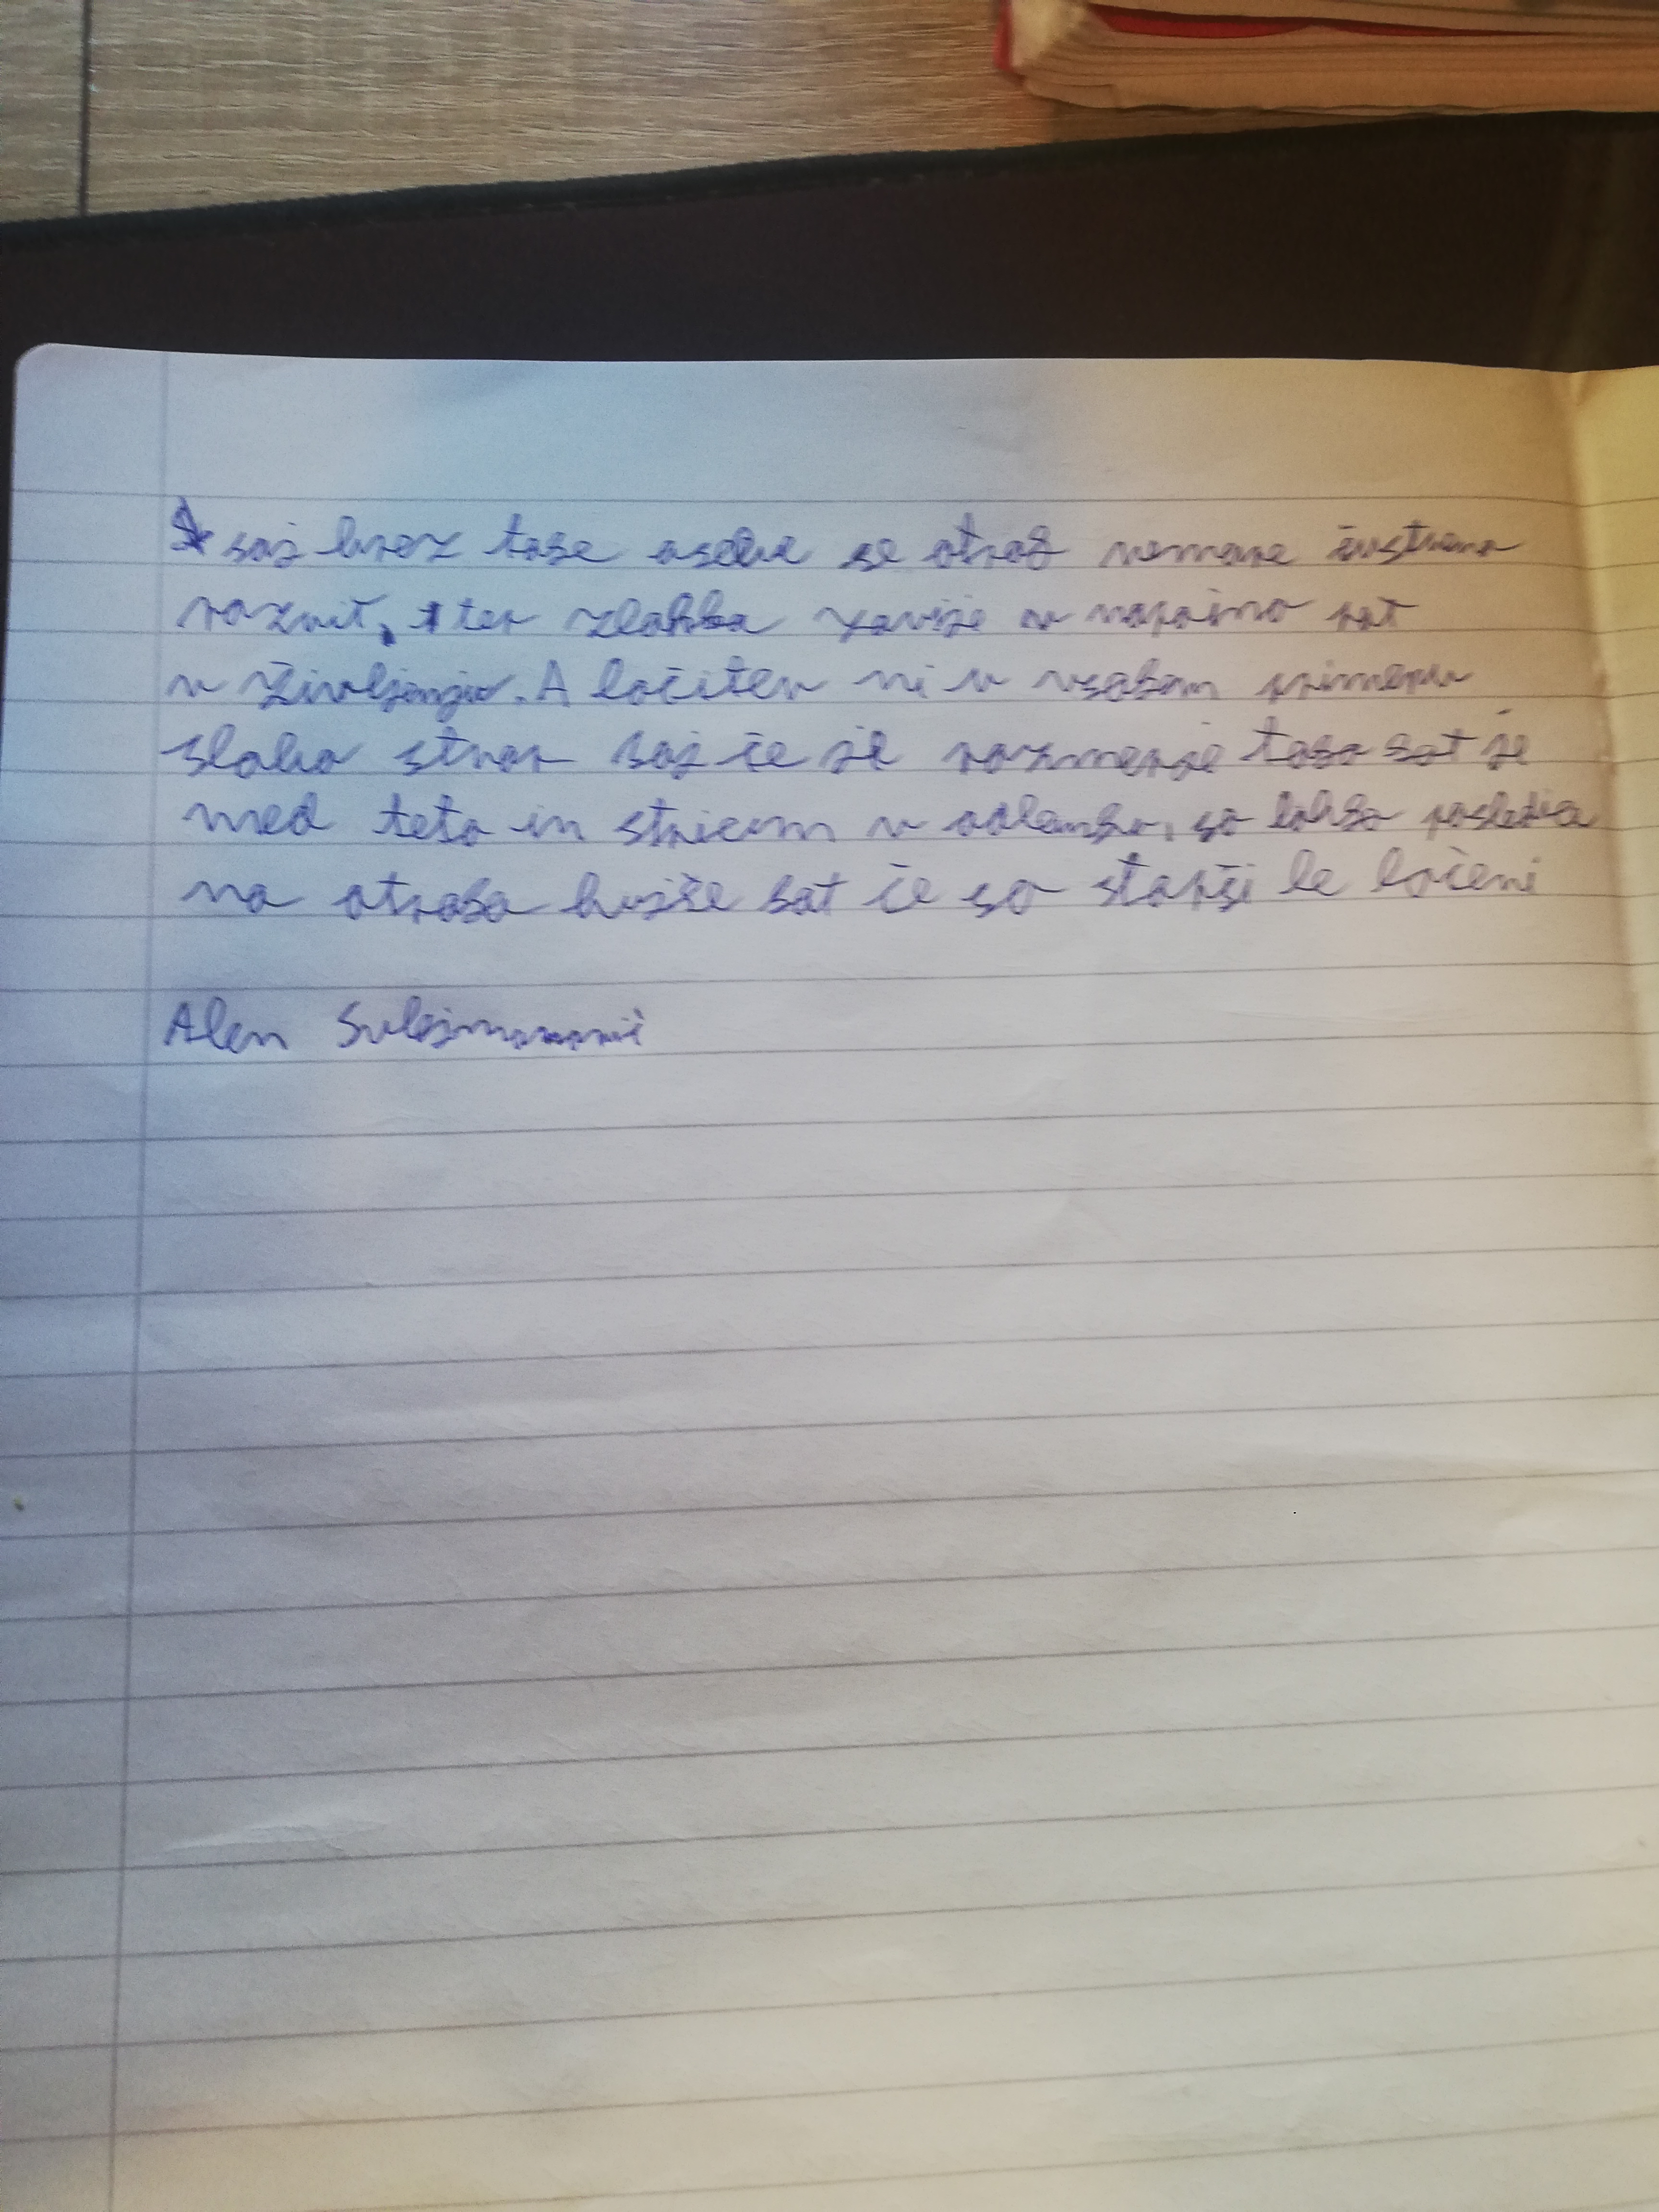 saj brez take osebe se otrok nemore čustveno
razvit, ter zlahka zavije v napačno pot
v življenju. A ločitev ni v vsakem primeru
slaba stvar saj če je razmerje tako kot je
med teto in stricem v odlomku, so lahko posledice
na otroka hujše kot če so starši le ločeni
Alen Sulejmanović